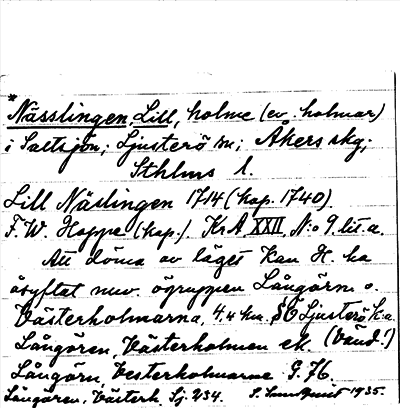 * Nässlingen, Lill, holme (ev. holmar)
i Saltsjön; Ljusterö sn; Åkers skg;
Sthlms l.
Lill Näslingen 1714 (kop. 1740).
F. W. Hoppe (kop.). KrA XXII, N:o 9. lit. a.
Att döma av läget kan H. ha
åsyftat nuv. ögruppen Långörn o.
Västerholmarna, 4.4 km. SÖ Ljusterö k:a
Långören, Västerholmen ek. (Vänd!)
Långörn, Vesterholmarne G. 76.
Långören, Västerh. Sj. 234. 1935.